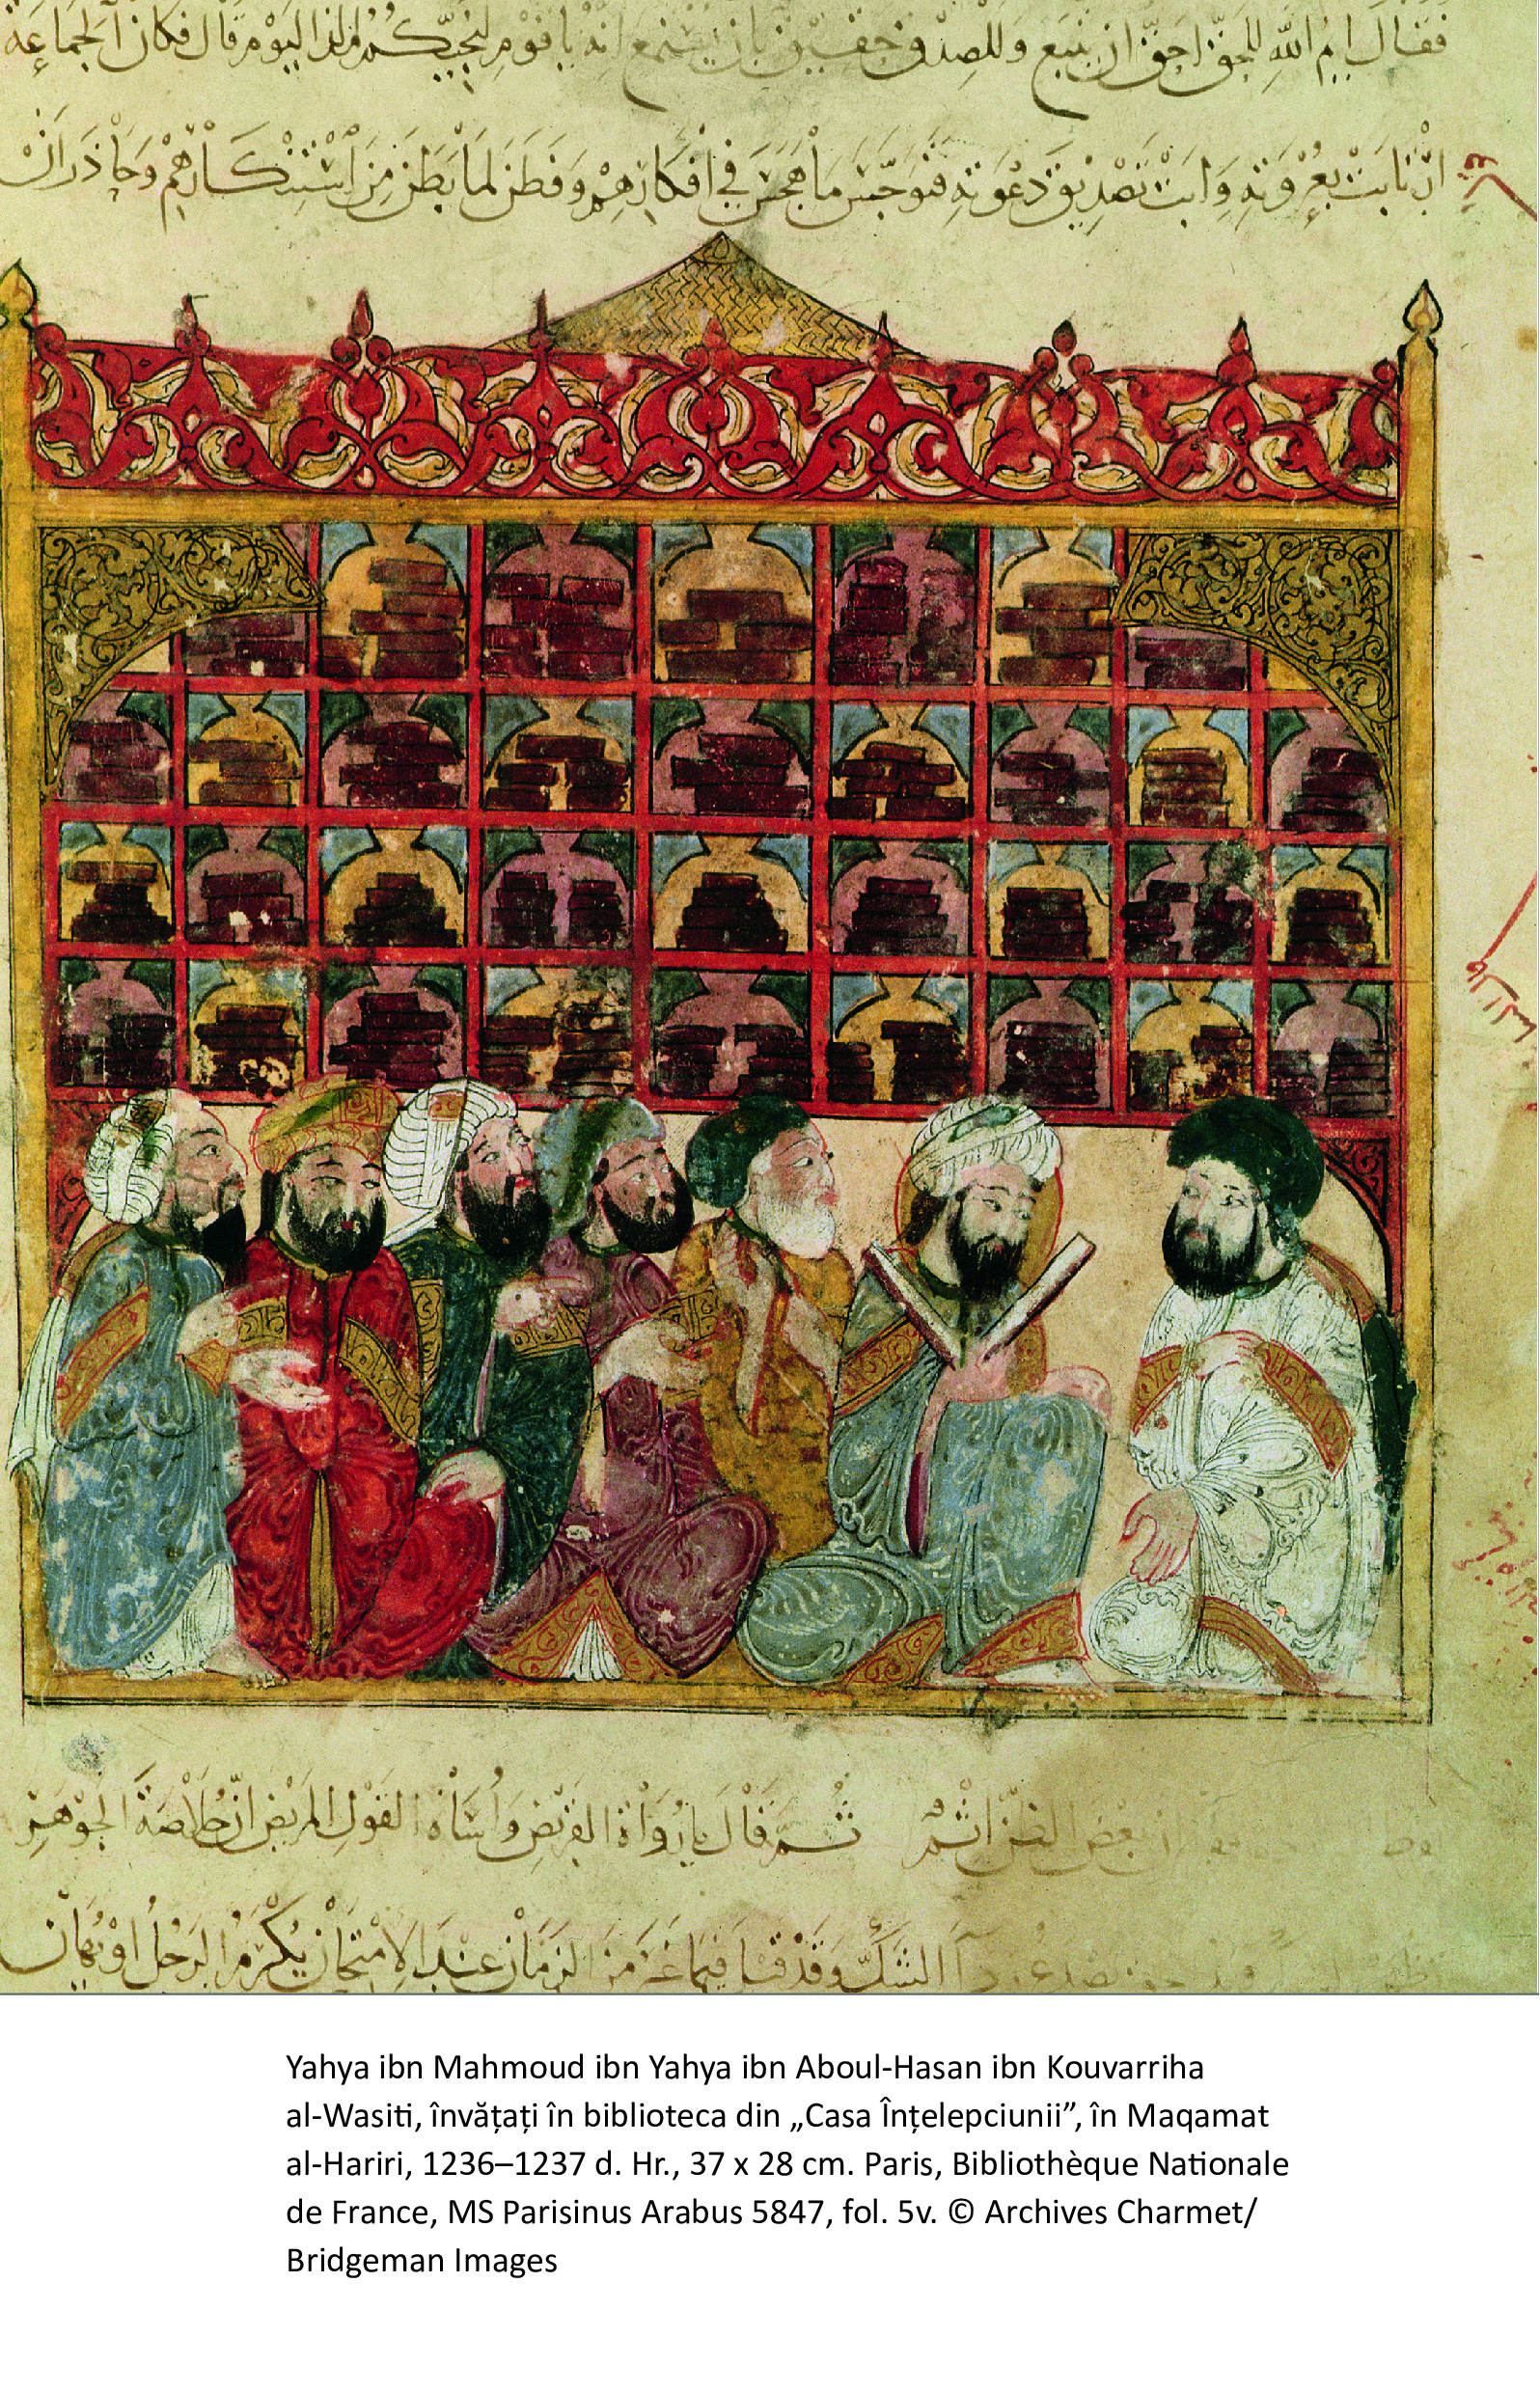 فَقَالَ ايمُ اللّهِ للحقّ احقّ ان يتبع وللصدق حقيق بان يستمع انه يا قوم لنجيّكم مذ اليوم قال فكان الجماعة
ارتابت بعزوته وابت تصديق دعوته فتوجس ما هجس في افكارهم وفطن لما بطن من استنكارهم وحاذر ان
ان بعض الظن اثم ثم قال يا رواة القريض وأساة القول المريض ان خلاصة الجوهر
الشك وقد قيل فيما غبر من الزمان عند الامتحان يكرم الرجل او يهان
Yahya ibn Mahmoud ibn Yahya ibn Aboul-Hasan ibn Kouvarriha
al-Wasiti, învățați în biblioteca din „Casa Înțelepciunii”, în Maqamat
al-Hariri, 1236–1237 d. Hr., 37 x 28 cm. Paris, Bibliothèque Nationale
de France, MS Parisinus Arabus 5847, fol. 5v. © Archives Charmet/
Bridgeman Images